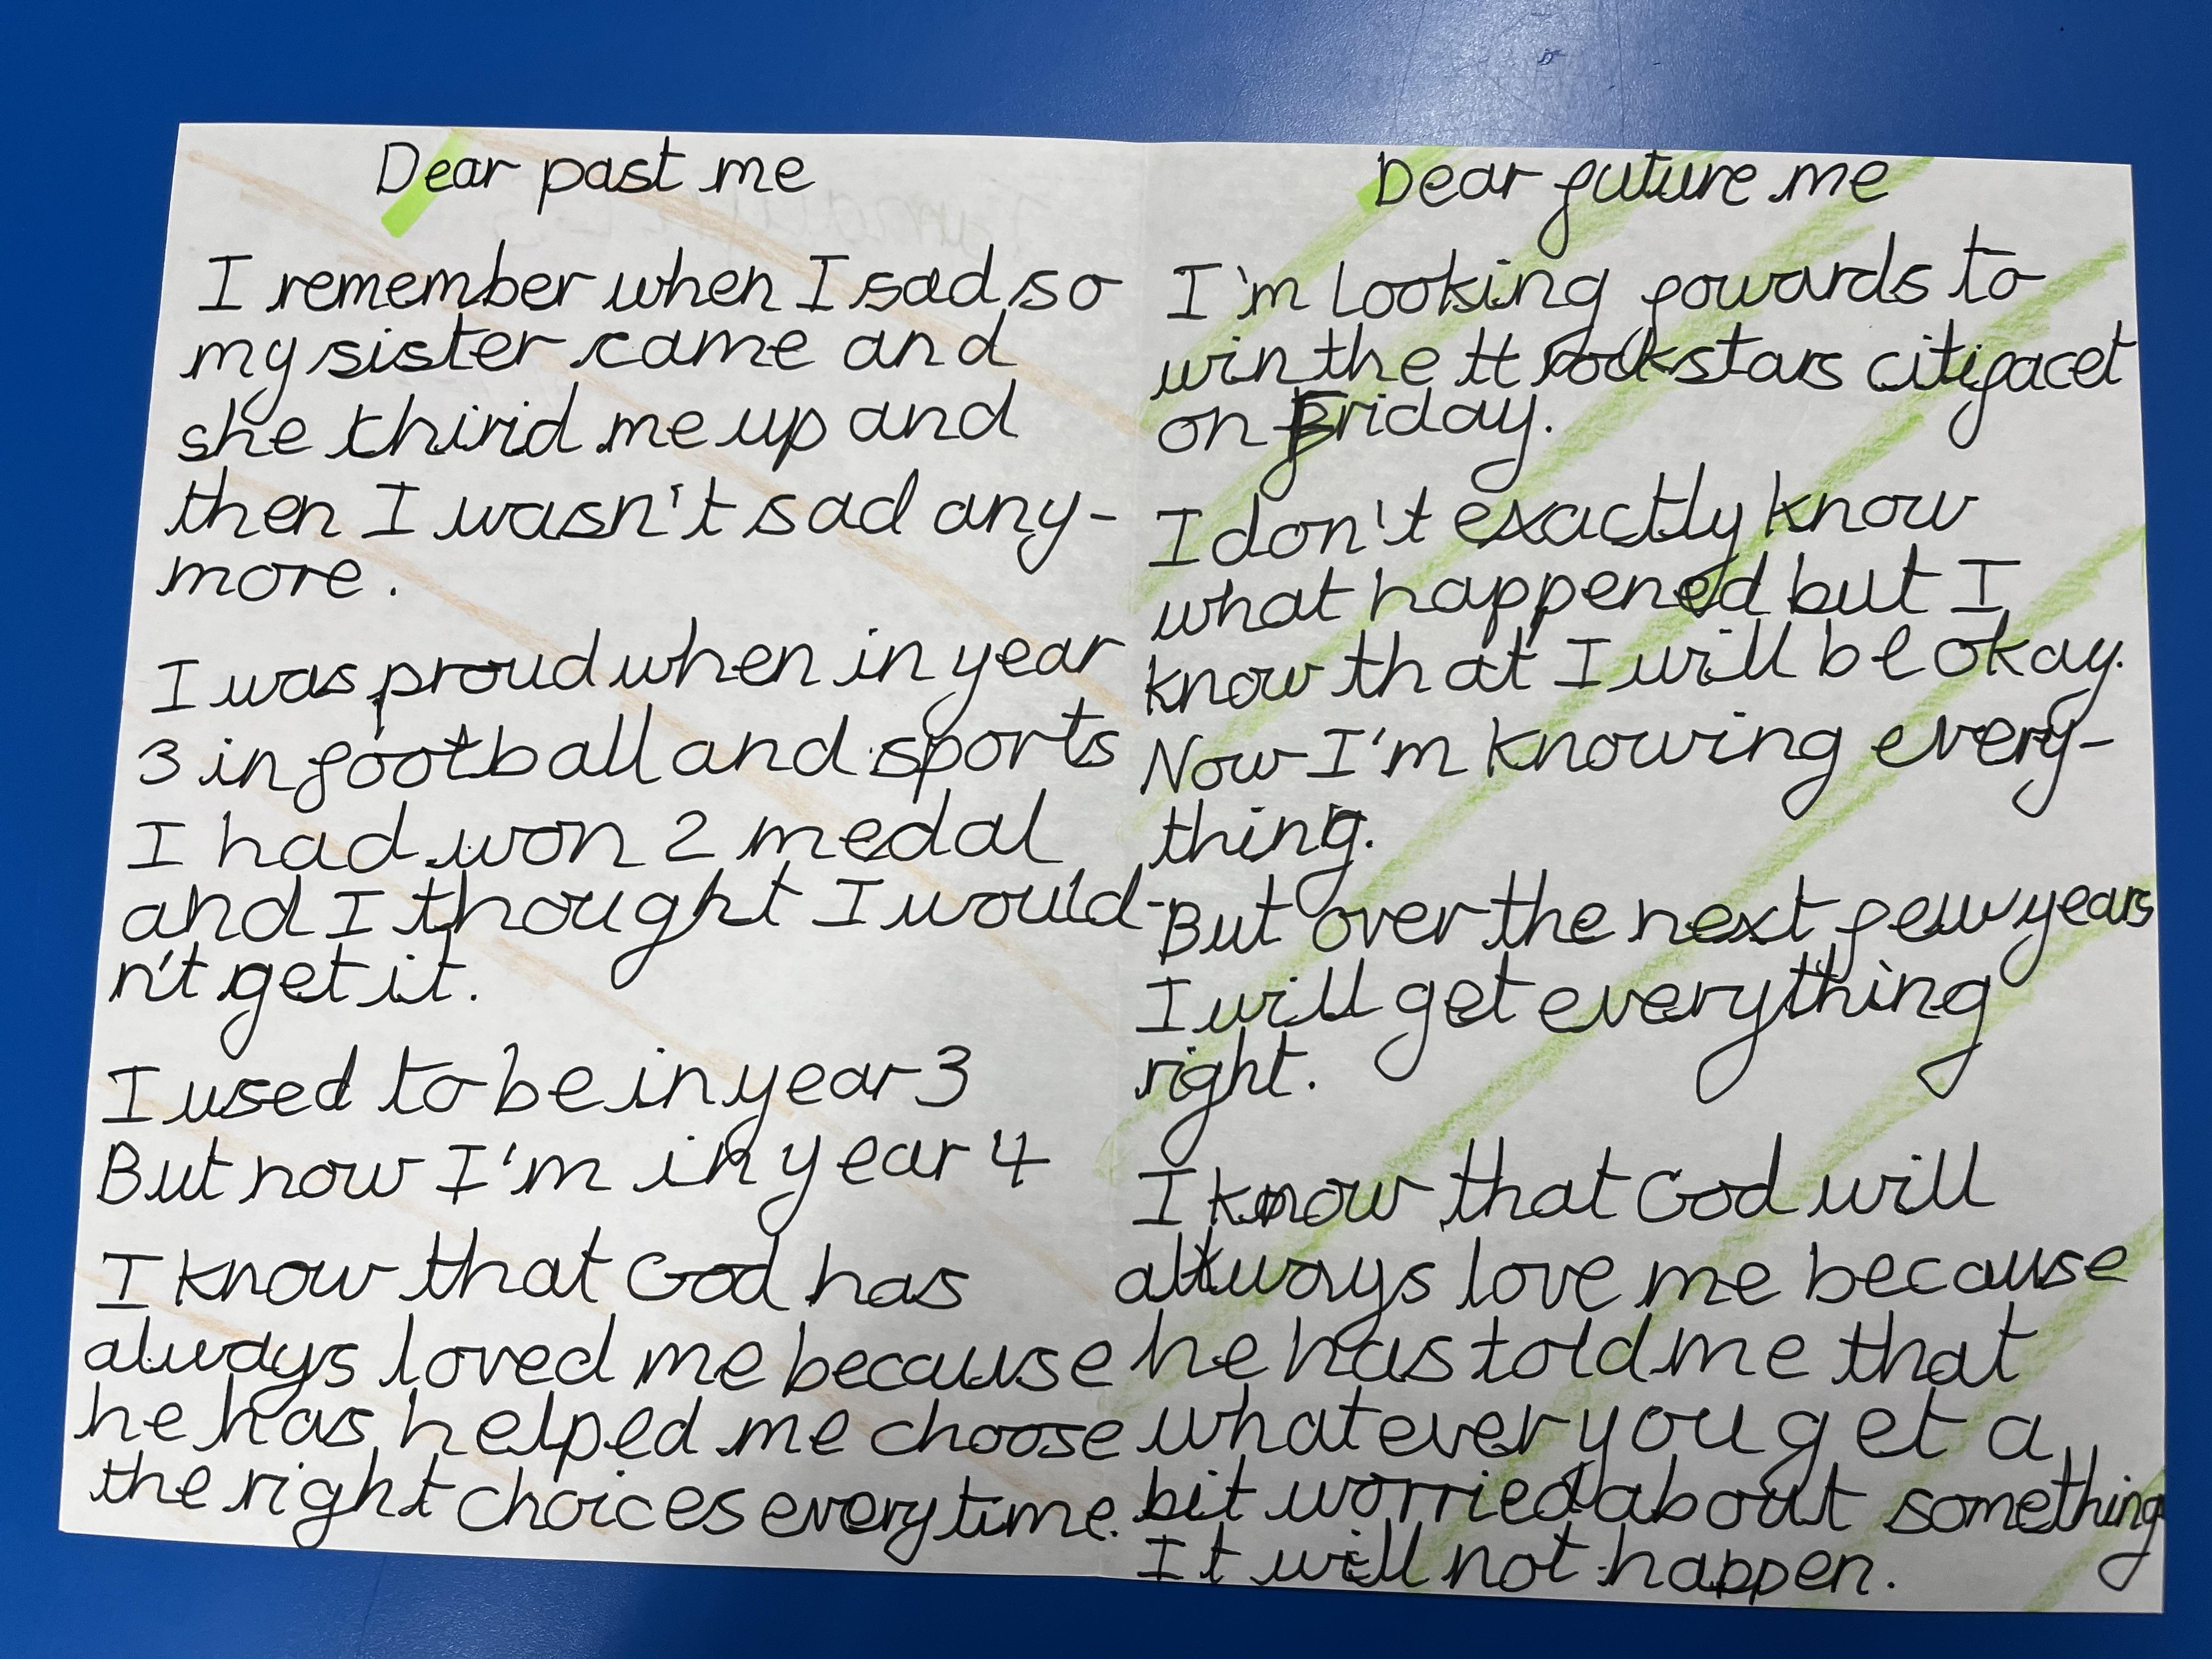 Dear past me
I remember when I sad so
my sister came and
she thirid me up and
then I wasn't sad any-
more.
I was proud when in year
3 in football and sports
I had won 2 medal
and I thought I would-
n't get it.
I used to be in year 3
But now I'm in year 4
I know that God has
always loved me because
he has helped me choose
the right choices every time.
Dear future me
I'm looking fowards to
win the tt rockstars citifacet
on Friday.
I don't exactly know
what happened but I
know that I will be okay.
Now I'm knowing every-
thing.
But over the next few years
I will get everything
right.
I know that God will
always love me because
he has told me that
whatever you get a
bit worried about something
It will not happen.